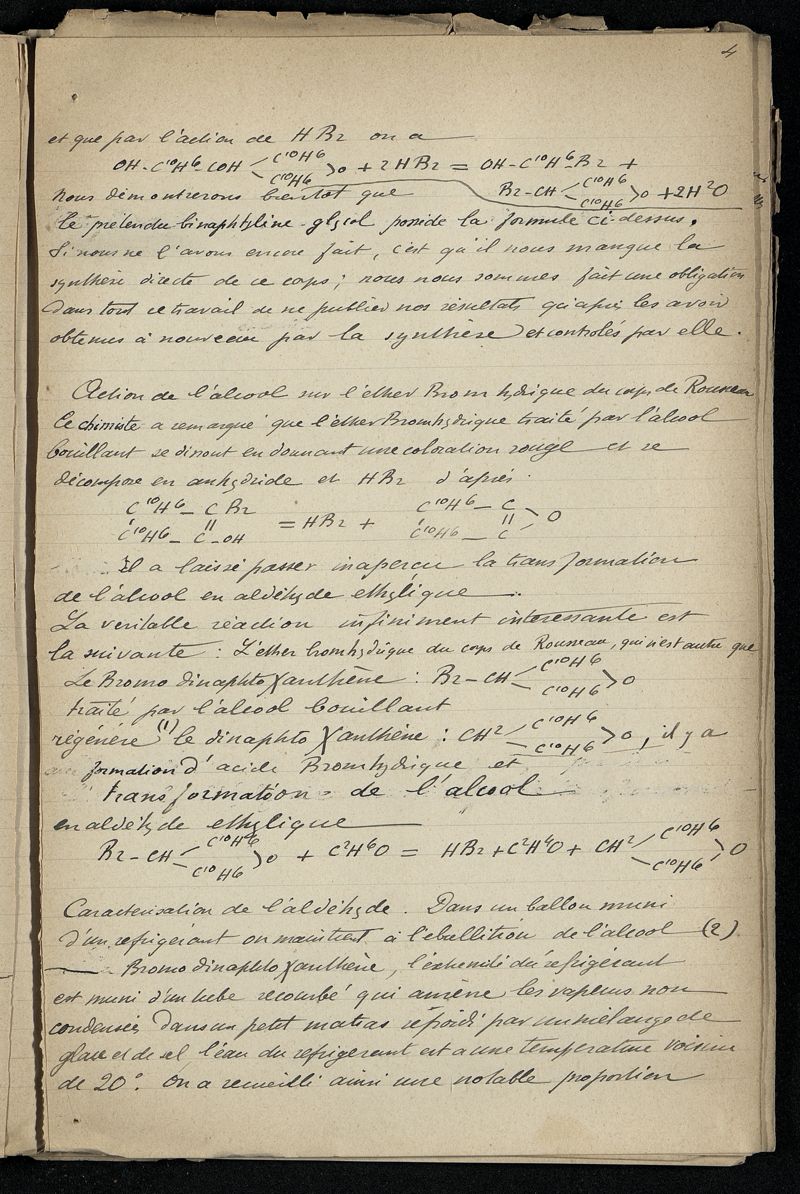 4
et que par l'action de HBr on a
OH-C¹⁰H⁶-COH < C¹⁰H⁶ C¹⁰H⁶ > O + 2HBr = OH-C¹⁰H⁶-Br +
nous démontrerons bientôt que Br-CH < C¹⁰H⁶ C¹⁰H⁶ > O + 2H²O
le prétendu binaphtylène-glycol possède la formule ci-dessus.
Si nous ne l'avons encore fait, c'est qu'il nous manque la
synthèse directe de ce corps; nous nous sommes fait une obligation
dans tout ce travail de ne publier nos résultats qu'après les avoir
obtenus à nouveau par la synthèse et contrôlés par elle.
Action de l'alcool sur l'éther Bromhydrique du corps de Rousseau
Ce chimiste a remarqué que l'éther Bromhydrique traité par l'alcool
bouillant se dissout en donnant une coloration rouge et se
décompose en anhydride et HBr d'après.
C¹⁰H⁶ - CBr C¹⁰H⁶ - C
= HBr + O
C¹⁰H⁶ - C-OH C¹⁰H⁶ - C
Il a laissé passer inaperçu la transformation
de l'alcool en aldéhyde ethylique.
La veritable réaction infiniment interessante est
la suivante : L'éther bromhydrique du corps de Rousseau, qui n'est autre que
Le Bromo dinaphto Xanthène : Br-CH < C¹⁰H⁶ C¹⁰H⁶ > O
traité par l'alcool bouillant
régénère (1) le dinaphto Xanthène : CH² < C¹⁰H⁶ C¹⁰H⁶ > O, il y a
formation d'acide Bromhydrique et
transformation de l'alcool
en aldéhyde ethylique
Br-CH < C¹⁰H⁶ C¹⁰H⁶ > O + C²H⁶O = HBr + C²H⁴O + CH² < C¹⁰H⁶ C¹⁰H⁶ > O
Caracterisation de l'aldéhyde. Dans un ballon muni
d'un refrigérant on maintient à l'ebullition de l'alcool (2)
Bromo dinaphto Xanthène, l'extremité du réfrigérant
est muni d'un tube recourbé qui amène les vapeurs non
condensées dans un petit matras refroidi par un mélange de
glace et de sel, l'eau du refrigerant est a une temperature voisine
de 20°. On a recueilli ainsi une notable proportion